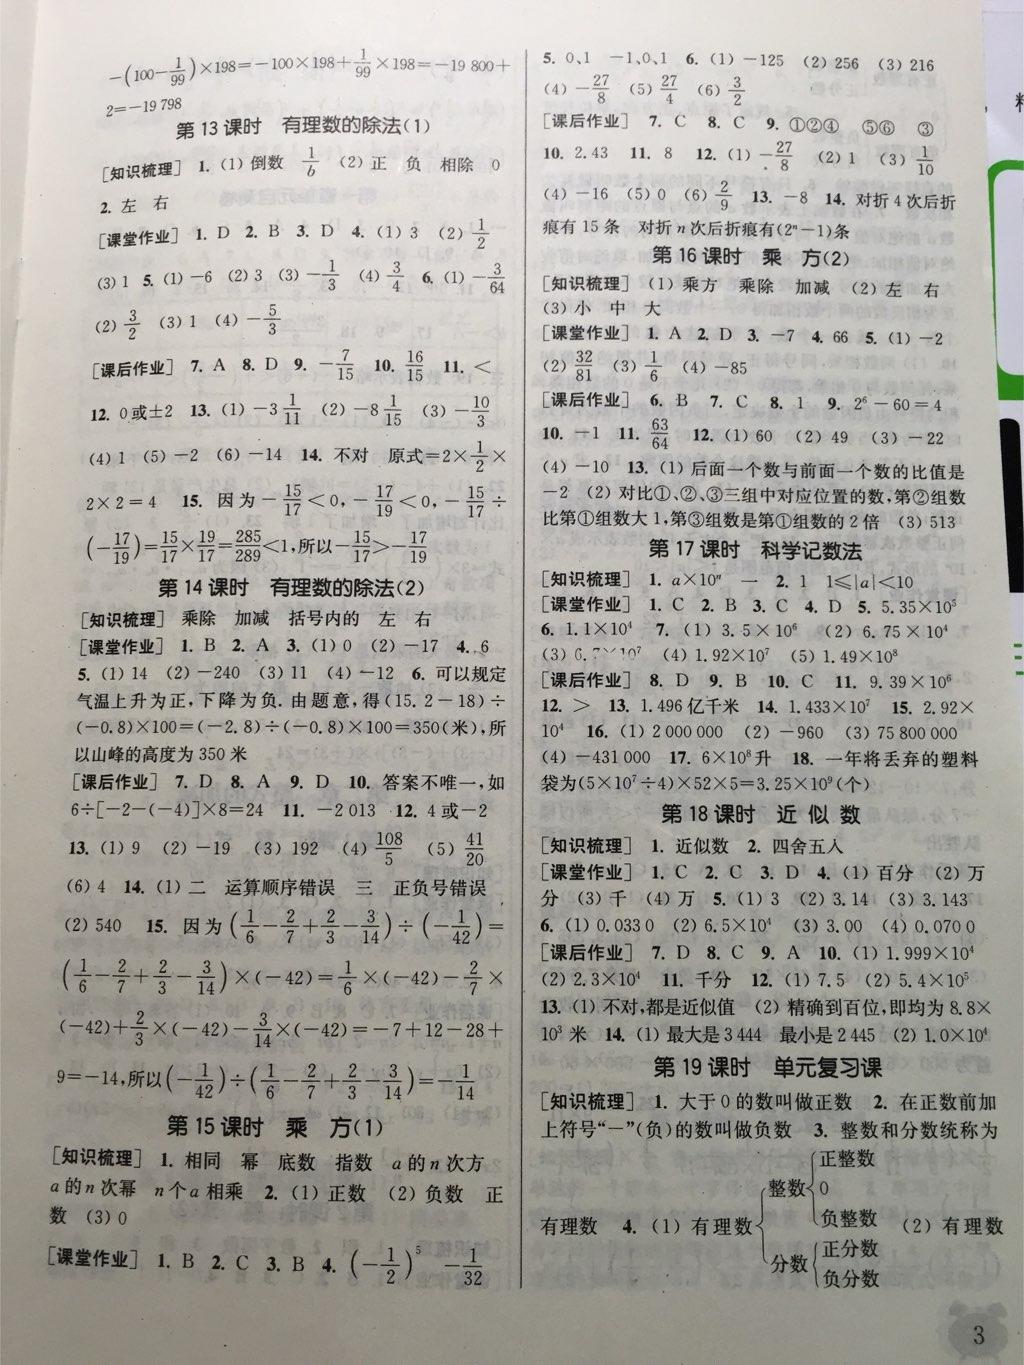 -(100-1/99)×198=-100×198+1/99×198=-19 800+
2=-19 798
第 13 课时 有理数的除法(1)
[知识梳理] 1. (1) 倒数 1/b (2) 正 负 相除 0
2. 左 右
[课堂作业] 1. D 2. B 3. D 4. (1) 3 (2) 1/2
(3) 1 5. (1) -6 (2) 3 (3) -1/3 (4) 3/4 6. (1) -3/64
(2) 3/2 (3) 1 (4) -5/3
[课后作业] 7. A 8. D 9. -7/15 10. 16/15 11. <
12. 0或±2 13. (1) -3 1/11 (2) -8 1/15 (3) -10/3
(4) 1 (5) -2 (6) -14 14. 不对 原式=2×1/2×
2×2=4 15. 因为-15/17<0,-17/19<0,-15/17÷
(-17/19)=15/17×19/17=285/289<1,所以-15/17>-17/19
第 14 课时 有理数的除法(2)
[知识梳理] 乘除 加减 括号内的 左 右
[课堂作业] 1. B 2. A 3. (1) 0 (2) -17 4. 6
5. (1) 14 (2) -240 (3) 11 (4) -12 6. 可以规定
气温上升为正,下降为负. 由题意,得(15.2-18)÷
(-0.8)×100=(-2.8)÷(-0.8)×100=350(米),所
以山峰的高度为 350 米
[课后作业] 7. D 8. A 9. D 10. 答案不唯一,如
6÷[-2-(-4)]×8=24 11. -2 013 12. 4或-2
13. (1) 9 (2) -19 (3) 192 (4) 108/5 (5) 41/20
(6) 4 14. (1) 二 运算顺序错误 三 正负号错误
(2) 540 15. 因为(1/6-2/7+2/3-3/14)÷(-1/42)=
(1/6-2/7+2/3-3/14)×(-42)=1/6×(-42)-2/7×
(-42)+2/3×(-42)-3/14×(-42)=-7+12-28+
9=-14,所以(-1/42)÷(1/6-2/7+2/3-3/14)=-1/14
第 15 课时 乘 方(1)
[知识梳理] 1. 相同 幂 底数 指数 a的n次方
a的n次幂 n个a相乘 2. (1) 正数 (2) 负数 正
数 (3) 0
[课堂作业] 1. B 2. C 3. B 4. (-1/2)⁵ -1/32
5. 0、1 -1、0、1 6. (1) -125 (2) 256 (3) 216
(4) -27/8 (5) 27/4 (6) 3/2
[课后作业] 7. C 8. C 9. ①②④ ⑤⑥ ③
10. 2.43 11. 8 12. (1) -27/8 (2) 1 (3) 1/10
(4) -16 (5) 0 (6) 2/9 13. -8 14. 对折4次后折
痕有15条 对折n次后折痕有(2ⁿ-1)条
第 16 课时 乘 方(2)
[知识梳理] (1) 乘方 乘除 加减 (2) 左 右
(3) 小 中 大
[课堂作业] 1. A 2. D 3. -7 4. 66 5. (1) -2
(2) 32/81 (3) 1/6 (4) -85
[课后作业] 6. B 7. C 8. 1 9. 2⁶-60=4
10. -1 11. 63/64 12. (1) 60 (2) 49 (3) -22
(4) -10 13. (1) 后面一个数与前面一个数的比值是
-2 (2) 对比①、②、③三组中对应位置的数,第②组数
比第①组数大1,第③组数是第①组数的2倍 (3) 513
第 17 课时 科学记数法
[知识梳理] 1. a×10ⁿ 一 2. 1 1≤|a|<10
[课堂作业] 1. C 2. B 3. C 4. D 5. 5.35×10⁵
6. 1.1×10⁴ 7. (1) 3.5×10⁶ (2) 6.75×10⁴
(3) ×10⁷ (4) 1.92×10⁷ (5) 1.49×10⁸
[课后作业] 8. D 9. B 10. C 11. 9.39×10⁶
12. > 13. 1.496亿千米 14. 1.433×10⁷ 15. 2.92×
10⁴ 16. (1) 2 000 000 (2) -960 (3) 75 800 000
(4) -431 000 17. 6×10⁸升 18. 一年将丢弃的塑料
袋为(5×10⁷÷4)×52×5=3.25×10⁹(个)
第 18 课时 近 似 数
[知识梳理] 1. 近似数 2. 四舍五人
[课堂作业] 1. C 2. C 3. D 4. (1) 百分 (2) 万
分 (3) 千 (4) 万 5. (1) 3 (2) 3.14 (3) 3.143
6. (1) 0.033 0 (2) 6.5×10⁴ (3) 3.00 (4) 0.070 0
[课后作业] 7. D 8. C 9. A 10. (1) 1.999×10⁴
(2) 2.3×10⁴ 11. 千分 12. (1) 7.5 (2) 5.4×10⁵
13. (1) 不对,都是近似值 (2) 精确到百位,即均为8.8×
10³ 米 14. (1) 最大是3 444 最小是2 445 (2) 1.0×10⁴
第 19 课时 单元复习课
[知识梳理] 1. 大于0的数叫做正数 2. 在正数前加
上符号“-”(负)的数叫做负数 3. 整数和分数统称为
有理数 4. (1) 有理数{整数{正整数
0
负整数
分数{正分数
负分数 (2) 有理数
3